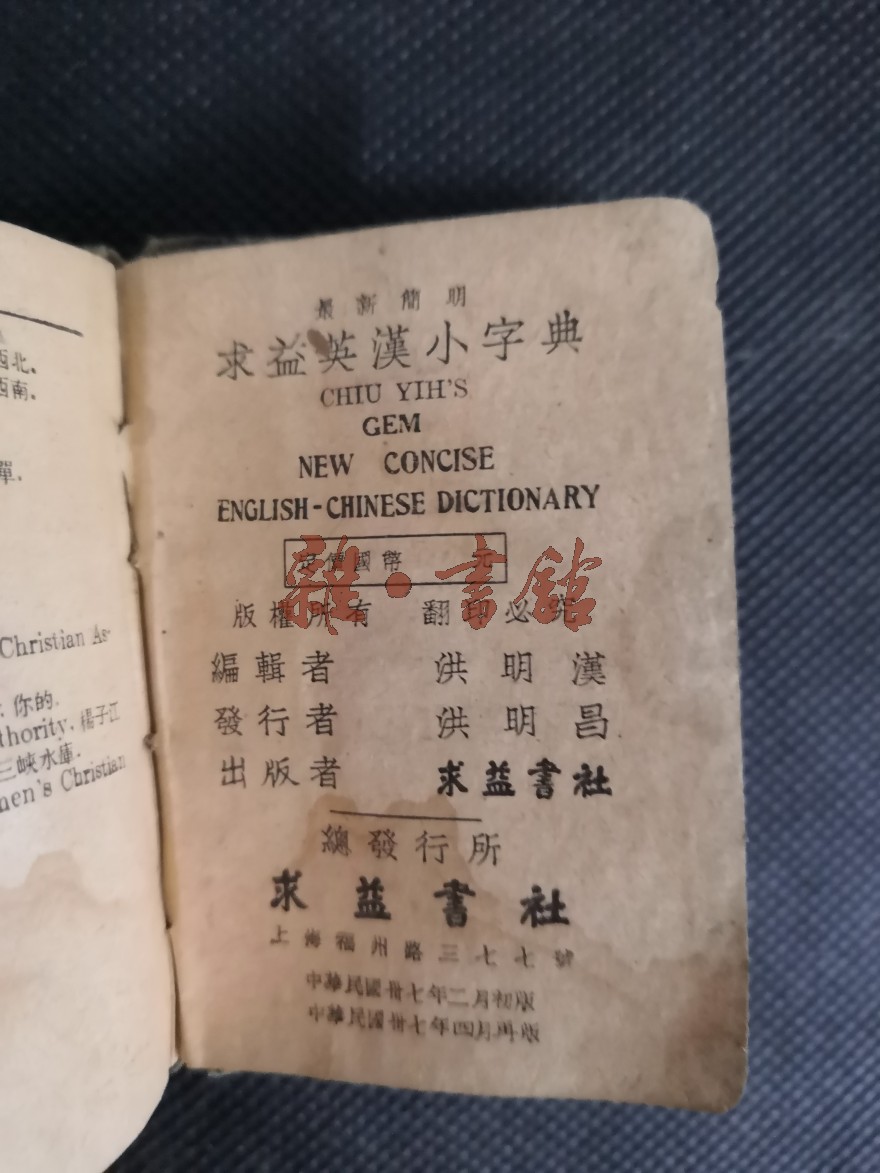 西北.
西南.
彈.
Christian As-
你的.
thority. 楊子江
三峽水庫.
men's Christian
最新簡明
求益英漢小字典
CHIU YIH'S
GEM
NEW CONCISE
ENGLISH-CHINESE DICTIONARY
定價國幣 元
雜·書館
版權所有 翻印必究
編輯者 洪明漢
發行者 洪明昌
出版者 求益書社
總發行所
求益書社
上海福州路三七七號
中華民國卅七年二月初版
中華民國卅七年四月再版